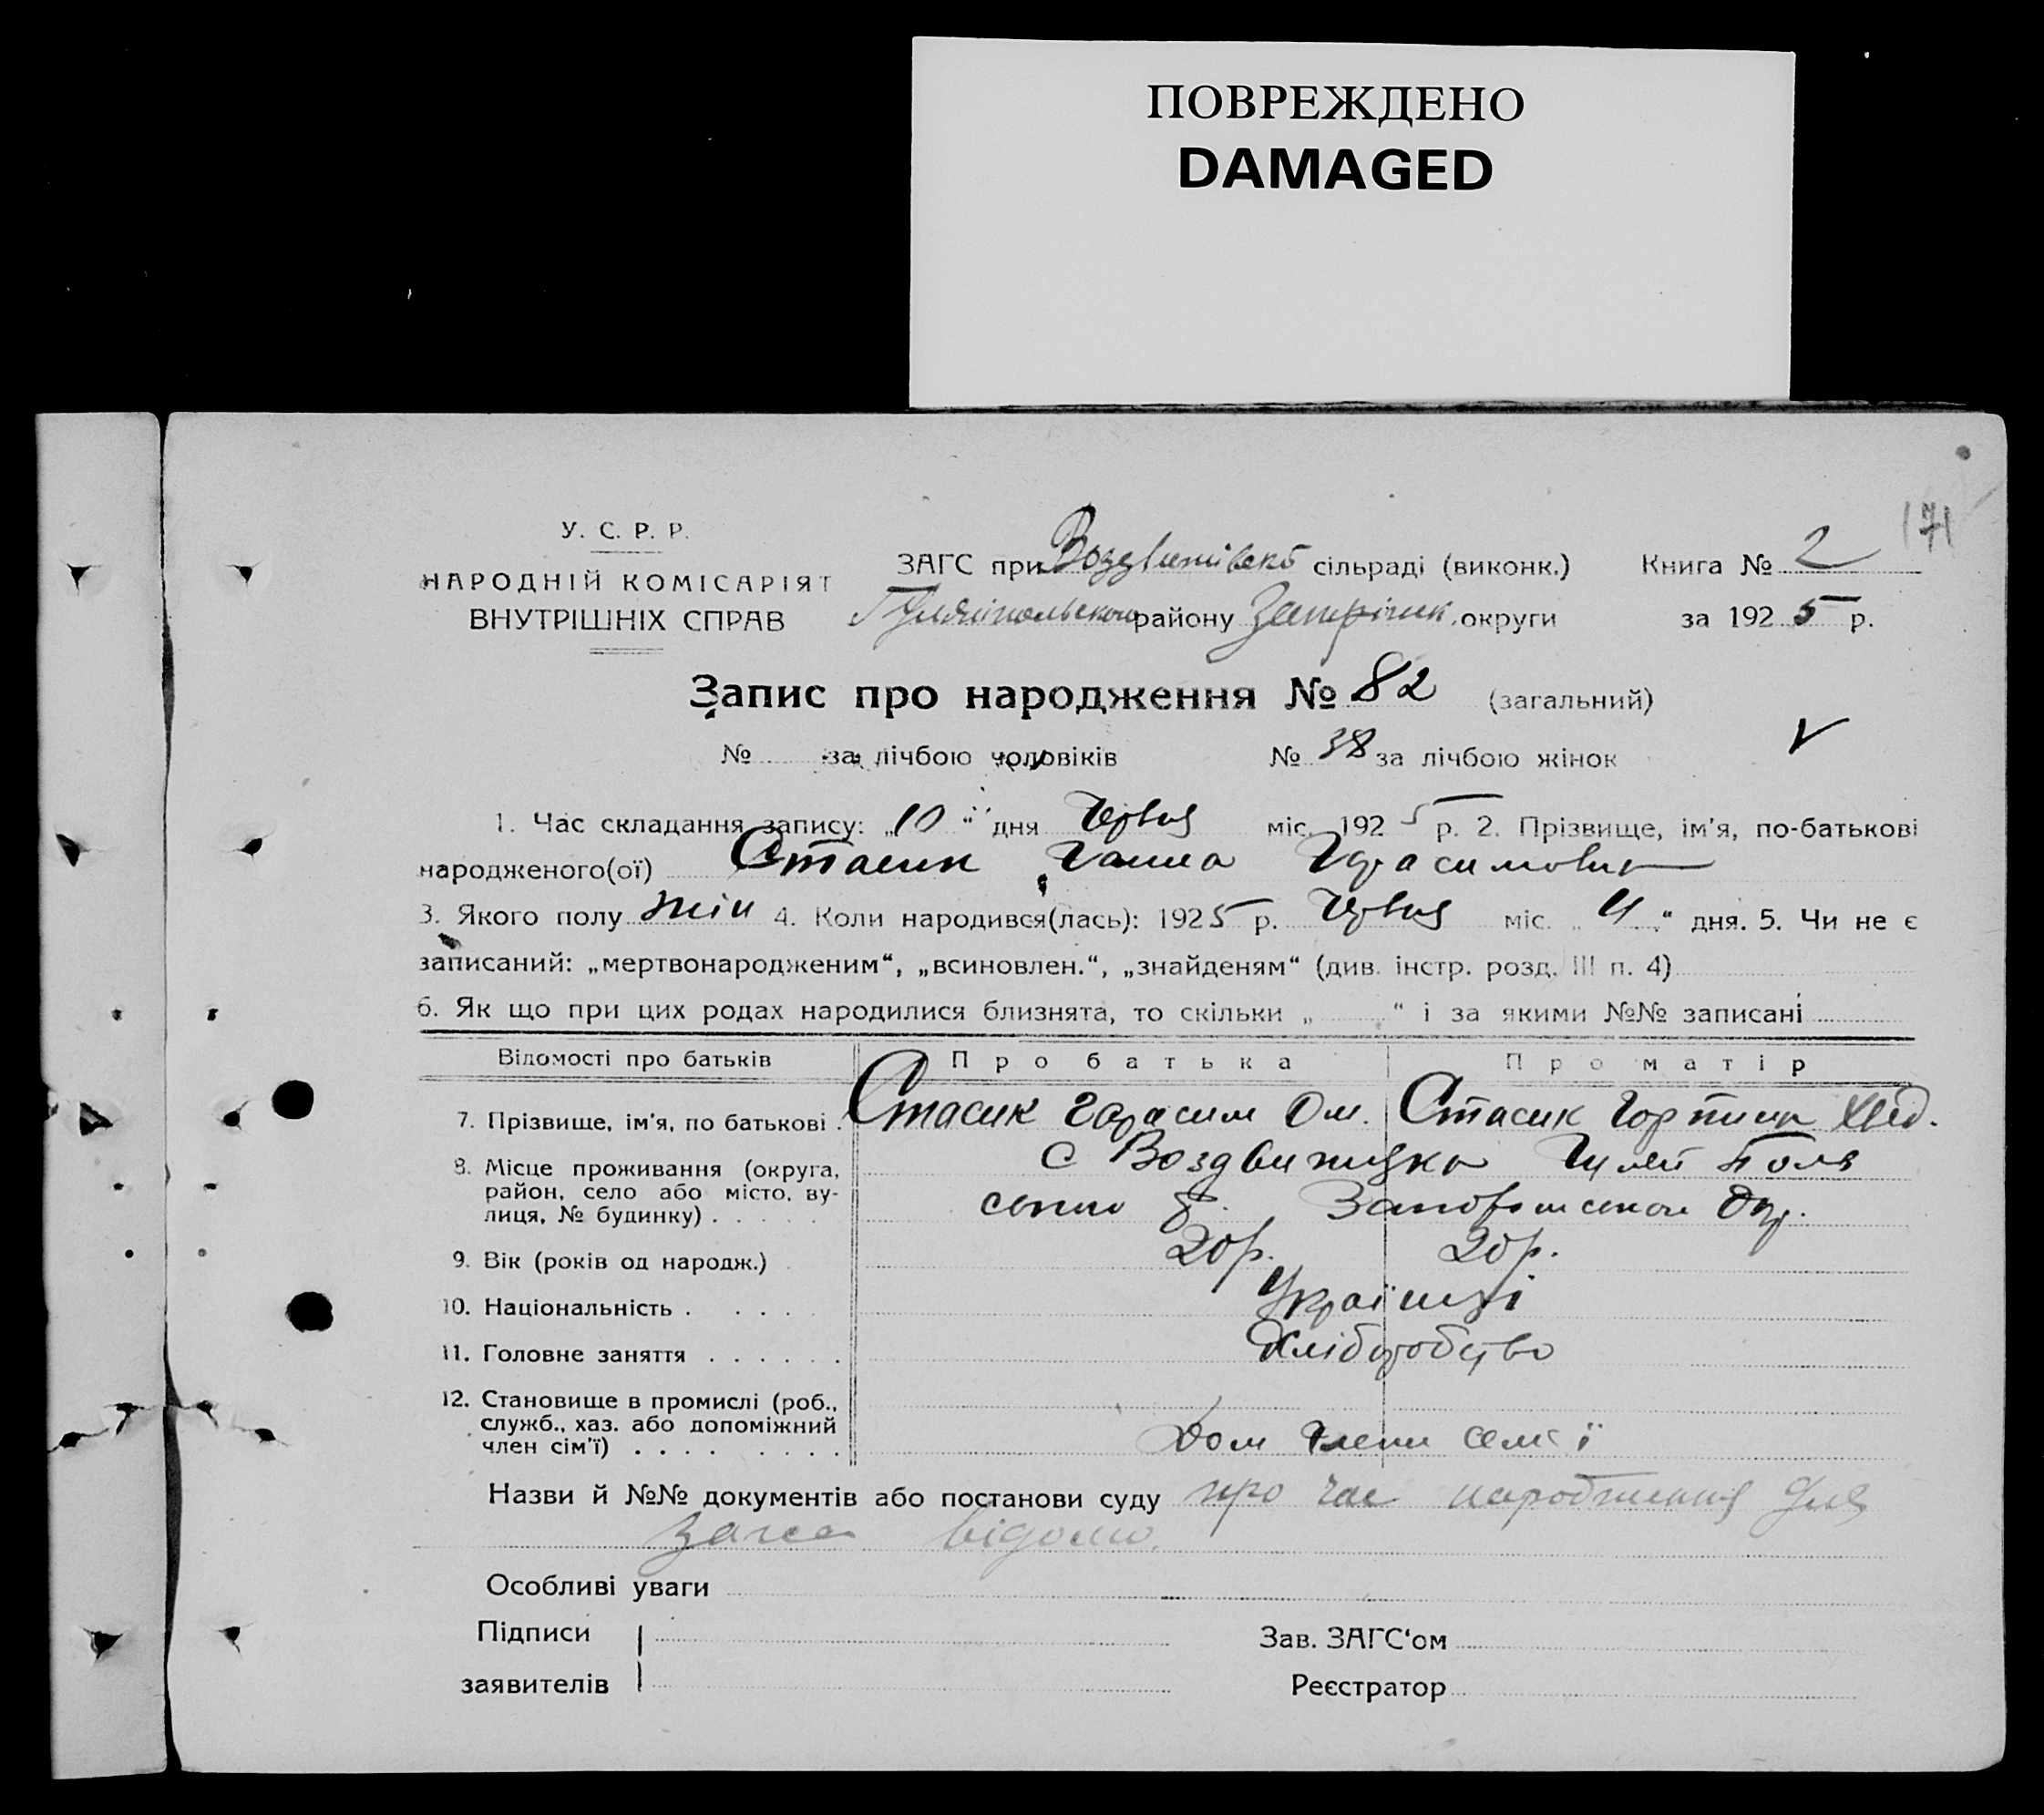 ПОВРЕЖДЕНО
DAMAGED
171
У. С. Р. Р.
НАРОДНІЙ КОМІСАРІЯТ
ВНУТРІШНІХ СПРАВ
ЗАГС при сільраді (виконк.) Книга № 2
району округи за 1925 р.
Запис про народження № 82 (загальний)
№ за лічбою чоловіків № 38 за лічбою жінок
1. Час складання запису: „10“ дня міс. 1925 р. 2. Прізвище, ім'я, по-батькові
народженого(ої) Стасик Ганна
3. Якого полу жін 4. Коли народився(лась): 1925 р. міс. „ “ дня. 5. Чи не є
записаний: „мертвонародженим“, „всиновлен.“, „знайденям“ (див. інстр. розд. III п. 4)
6. Як що при цих родах народилися близнята, то скільки „ “ і за якими №№ записані
Відомості про батьків Про батька Про матір
7. Прізвище, ім'я, по батькові . Стасик Гарасим Ом. Стасик Горпина Хвед.
8. Місце проживання (округа, с Воздвижнка Гуляй Поля
район, село або місто, ву-
лиця, № будинку) . . . . . Окр.
9. Вік (років од народж.) 20 р. 20 р.
10. Національність . . . . Українці
11. Головне заняття . . . . . . Хліборобство
12. Становище в промислі (роб.,
служб., хаз. або допоміжний
член сім'ї) . . . . . . . . Доп члени сем'ї
Назви й №№ документів або постанови суду про час народження для
загса відомо.
Особливі уваги
Підписи
Зав. ЗАГС'ом
заявителів
Реєстратор